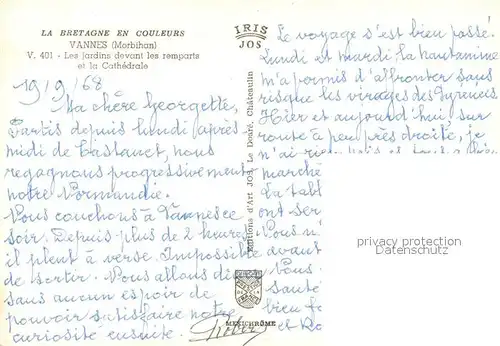 LA BRETAGNE EN COULEURS
VANNES (Morbihan)
V. 401 - Les jardins devant les remparts
et la Cathédrale
IRIS
JOS
19/9/68
Ma chère Georgette,
Partis depuis lundi après
midi de Castanet, nous
regagnons progressivement
notre Normandie.
Nous couchons à Vannes ce
soir. Depuis plus de 2 heures
il pleut à verse. Impossible
de sortir. Nous allons
sans aucun espoir de
pouvoir satisfaire notre
curiosité ensuite.
Editions d'Art JOS Le Doaré, Châteaulin
MEXICHROME
Le voyage s'est bien passé.
Lundi et mardi la hautamine
m'a permis d'affronter sans
risque les virages des Pyrénées
Hier et aujourd'hui, sur
route à peu près droite, je
n'ai rien
marché
La tabl
ont ser
Nous n
avant
Nous
sauté
bien fa
et
privacy protection
Datenschutz